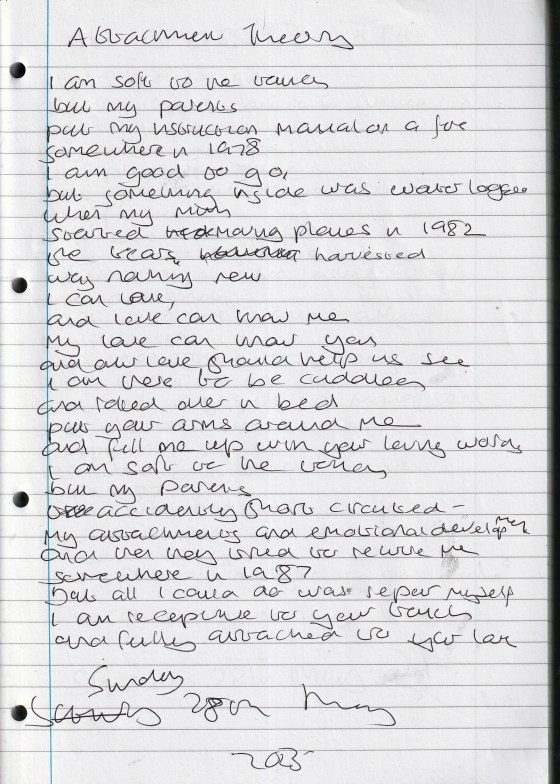 Attachment Theory
I am soft to the touch
but my parents
put my instruction manual on a fire
somewhere in 1978
I am good to go,
but something inside was waterlogged
when my mum
started making planes in 1982
the tears, harvested
was nothing new
I can love,
and love can know me
My love can know you
and our love should help us see
I am here to be cuddled
and rolled over in bed
put your arms around me
and fill me up with your loving words
I am soft to the touch
but my parents
accidently short circuited -
my attachments and emotional development
and then they tried to rewire me
somewhere in 1987
but all I could do was repeat myself
I am receptive to your touch
and fully attached to your love
Sunday
28th May